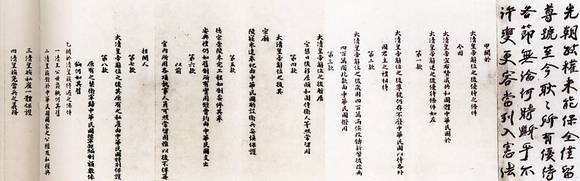 先朝政權未能保全僅留
尊號至今耿耿所有優待
各節無論何時斷乎不
許變更容當列入憲法
甲關於
大清皇帝辭位之後優待條件
今因
大清皇帝宣布贊成共和國體中華民國於
大清皇帝辭位之後優待條件如左
第一款
大清皇帝辭位之後尊號仍存不廢中華民國以待各外
國君主之禮相待
第二款
大清皇帝辭位之後歲用四百萬兩俟改鑄新幣後改為
四百萬圓此款由中華民國撥用
第三款
大清皇帝辭位之後暫居
宮禁日後移居頤和園侍衛人等照常留用
第四款
大清皇帝辭位之後其
宗廟
陵寢永遠奉祀由中華民國酌設衛兵妥慎保護
第五款
德宗崇陵未完工程如制妥修其奉
安典禮仍如舊制所有實用經費均由中華民國支出
第六款
以前
宮內所用各項執事人員可照常留用惟以後不得再
招閹人
第七款
大清皇帝辭位之後其原有之私產由中華民國特別保護
第八款
原有之禁衛軍歸中華民國陸軍部編制額數俸
餉仍如其舊
乙關於清皇族待遇之條件
一清王公世爵概仍其舊
二清皇族對於中華民國國家之公權及私權與
三清皇族私產一體保護
四清皇族免當兵之義務